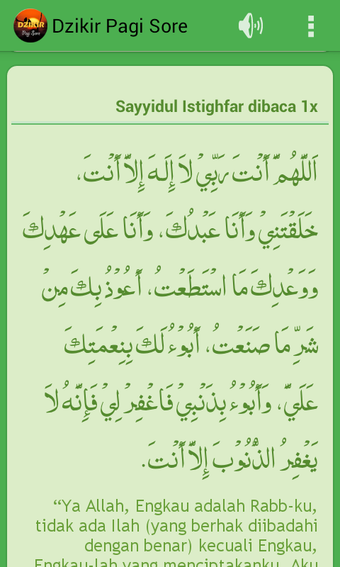 DZIKIR
Pagi Sore
Dzikir Pagi Sore
Sayyidul Istighfar dibaca 1x
اَللَّهُمَّ أَنْتَ رَبِّيْ لاَ إِلَـهَ إِلاَّ أَنْتَ،
خَلَقْتَنِيْ وَأَنَا عَبْدُكَ، وَأَنَا عَلَى عَهْدِكَ
وَوَعْدِكَ مَا اسْتَطَعْتُ، أَعُوْذُ بِكَ مِنْ
شَرِّ مَا صَنَعْتُ، أَبُوْءُ لَكَ بِنِعْمَتِكَ
عَلَيَّ، وَأَبُوْءُ بِذَنْبِيْ فَاغْفِرْ لِيْ فَإِنَّهُ لاَ
يَغْفِرُ الذُّنُوْبَ إِلاَّ أَنْتَ.
“Ya Allah, Engkau adalah Rabb-ku,
tidak ada Ilah (yang berhak diibadahi
dengan benar) kecuali Engkau,
Engkau-lah yang menciptakanku. Aku